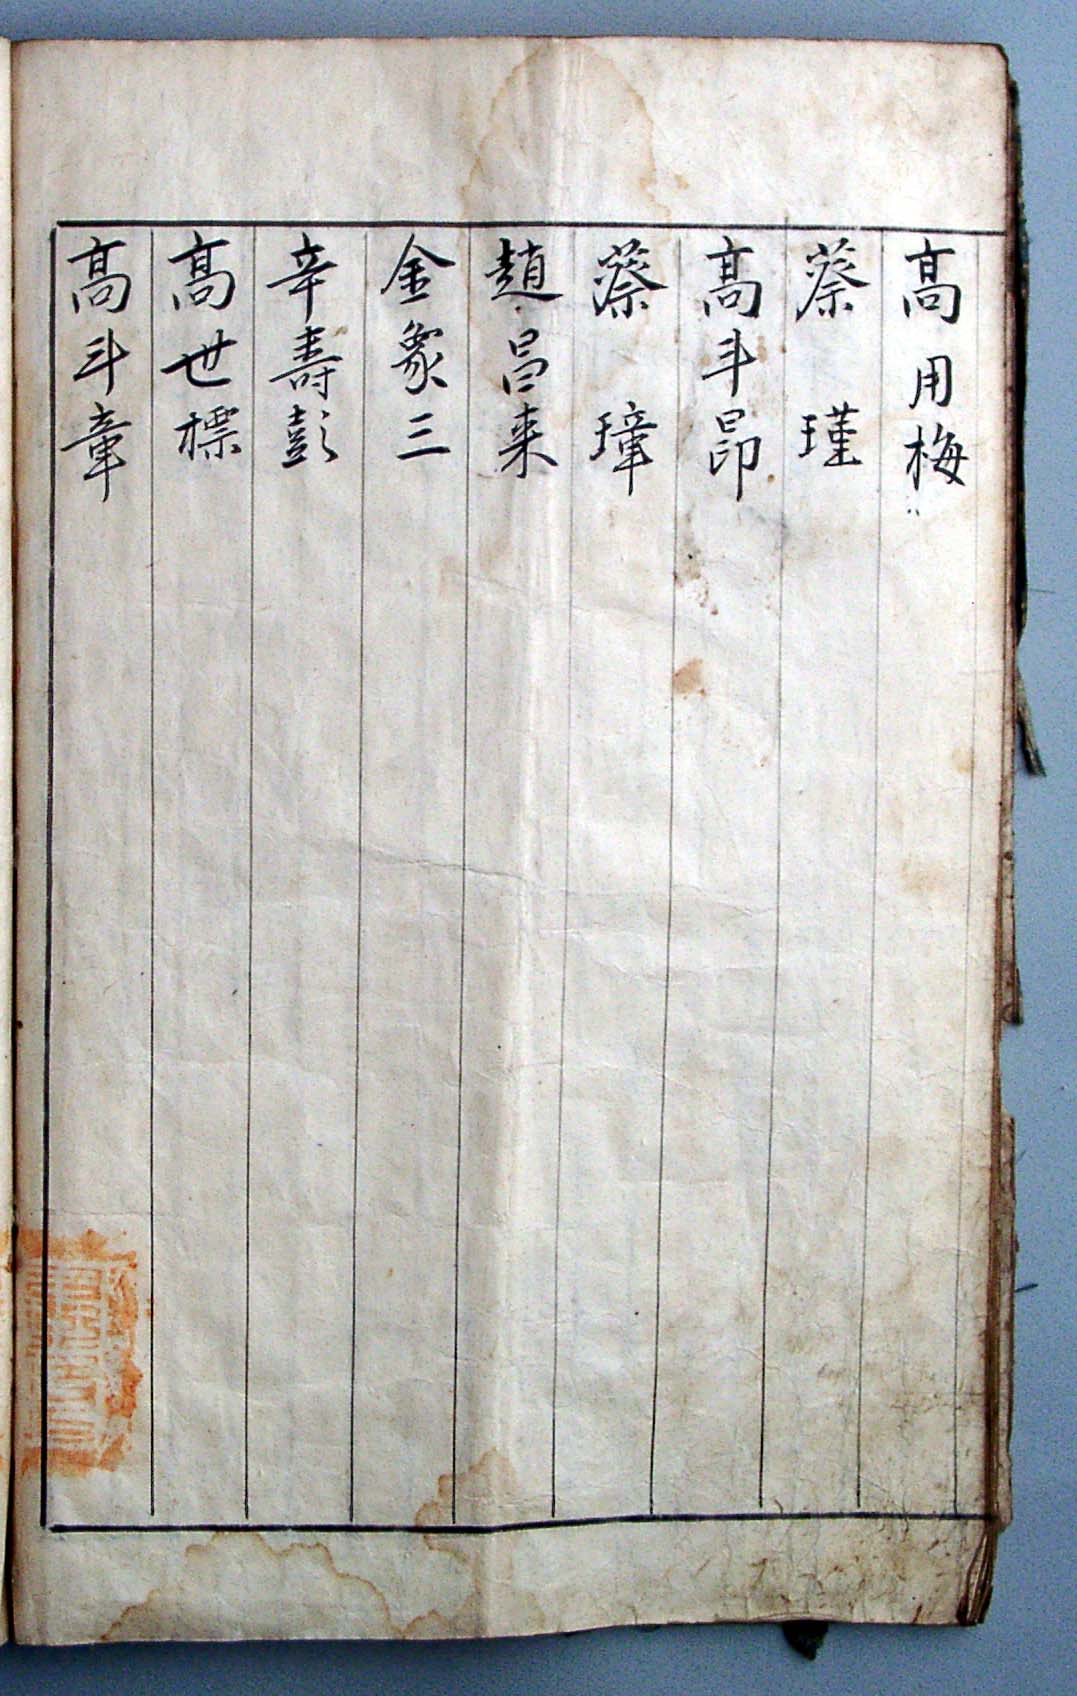 高用梅
蔡瑾
高斗昂
蔡璋
趙昌來
金象三
辛壽彭
高世標
高斗章